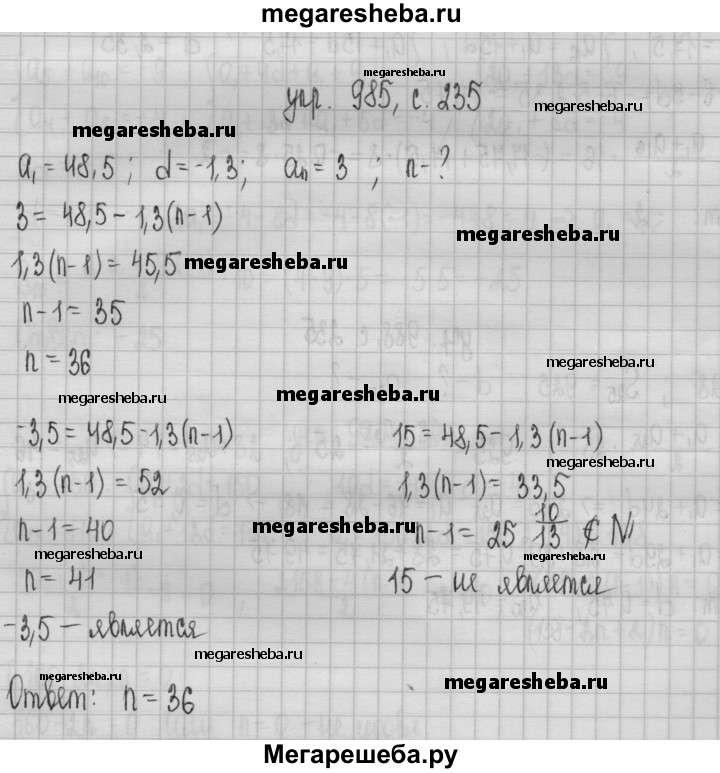 megaresheba.ru
megaresheba.ru
упр. 985, с. 235
megaresheba.ru
megaresheba.ru
a₁ = 48,5 ; d = -1,3 ; aₙ = 3 ; n - ?
3 = 48,5 - 1,3(n-1)
megaresheba.ru
1,3(n-1) = 45,5 megaresheba.ru
n-1 = 35
n = 36
megaresheba.ru
megaresheba.ru
megaresheba.ru
-3,5 = 48,5 - 1,3(n-1)
1,3(n-1) = 52
n-1 = 40
megaresheba.ru
n = 41
-3,5 - является
15 = 48,5 - 1,3(n-1)
megaresheba.ru
1,3(n-1) = 33,5
megaresheba.ru
n-1 = 25 10/13 ∉ N
megaresheba.ru
15 - не является
megaresheba.ru
megaresheba.ru
megaresheba.ru
Ответ: n = 36
Мегарешеба.ру